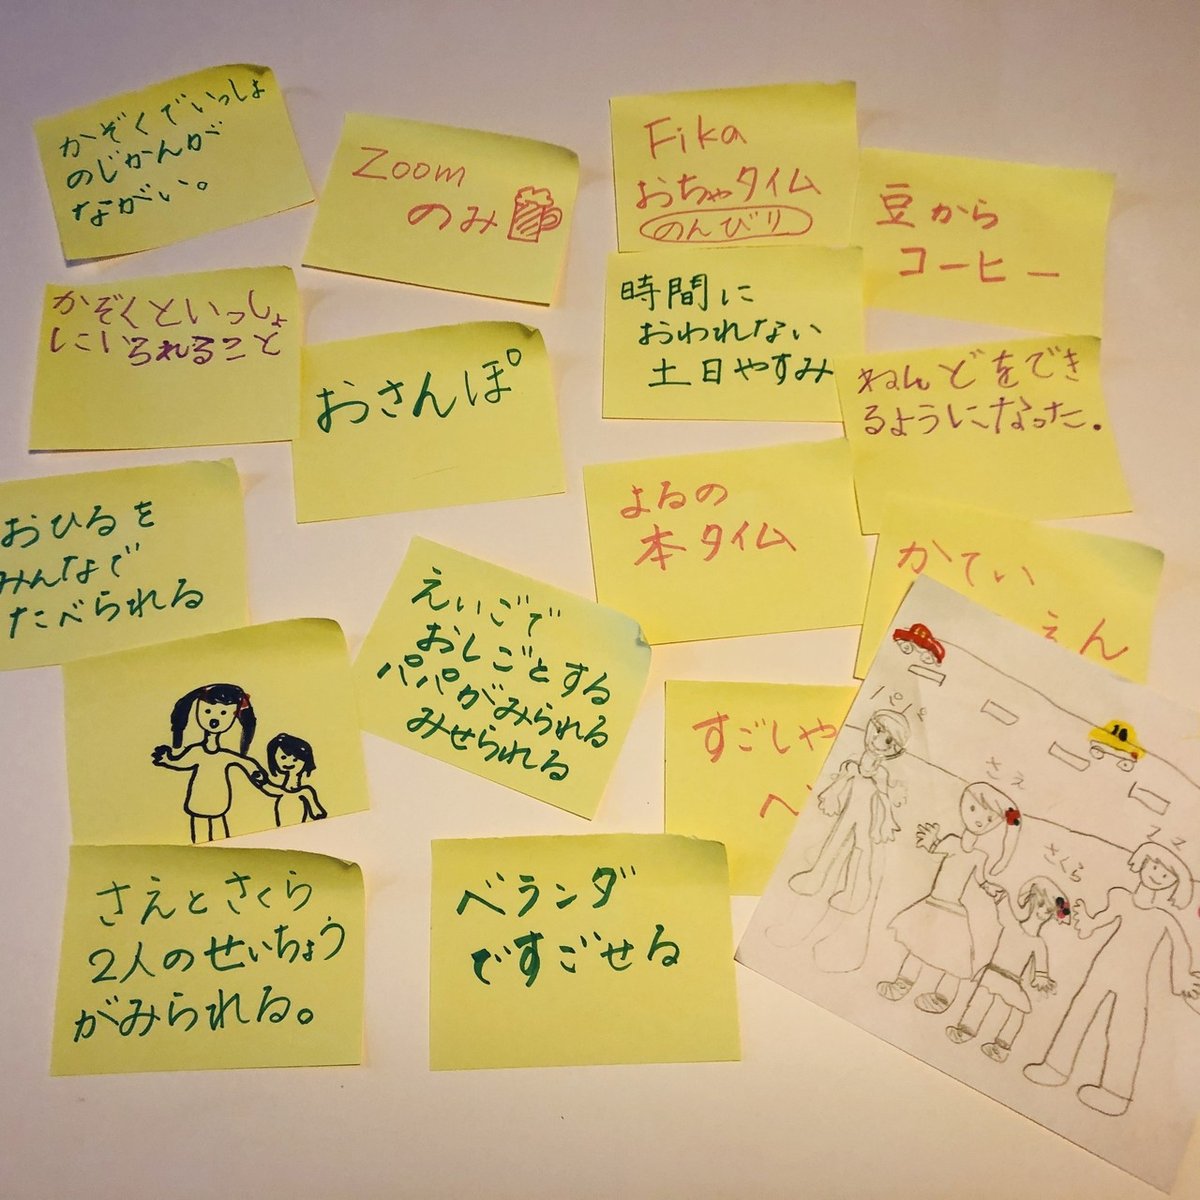 かぞくでいっしょ
のじかんが
ながい。
Zoom
のみ
Fika
おちゃタイム
のんびり
豆から
コーヒー
かぞくといっしょ
にいられること
おさんぽ
時間に
おわれない
土日やすみ
ねんどをでき
るようになった.
おひるを
みんなで
たべられる
えいごで
おしごとする
パパがみられる
みせられる
よるの
本タイム
かてい
えん
すごしや
さえとさくら
2人のせいちょう
がみられる。
ベランダ
ですごせる
パパ
さえ
さくら